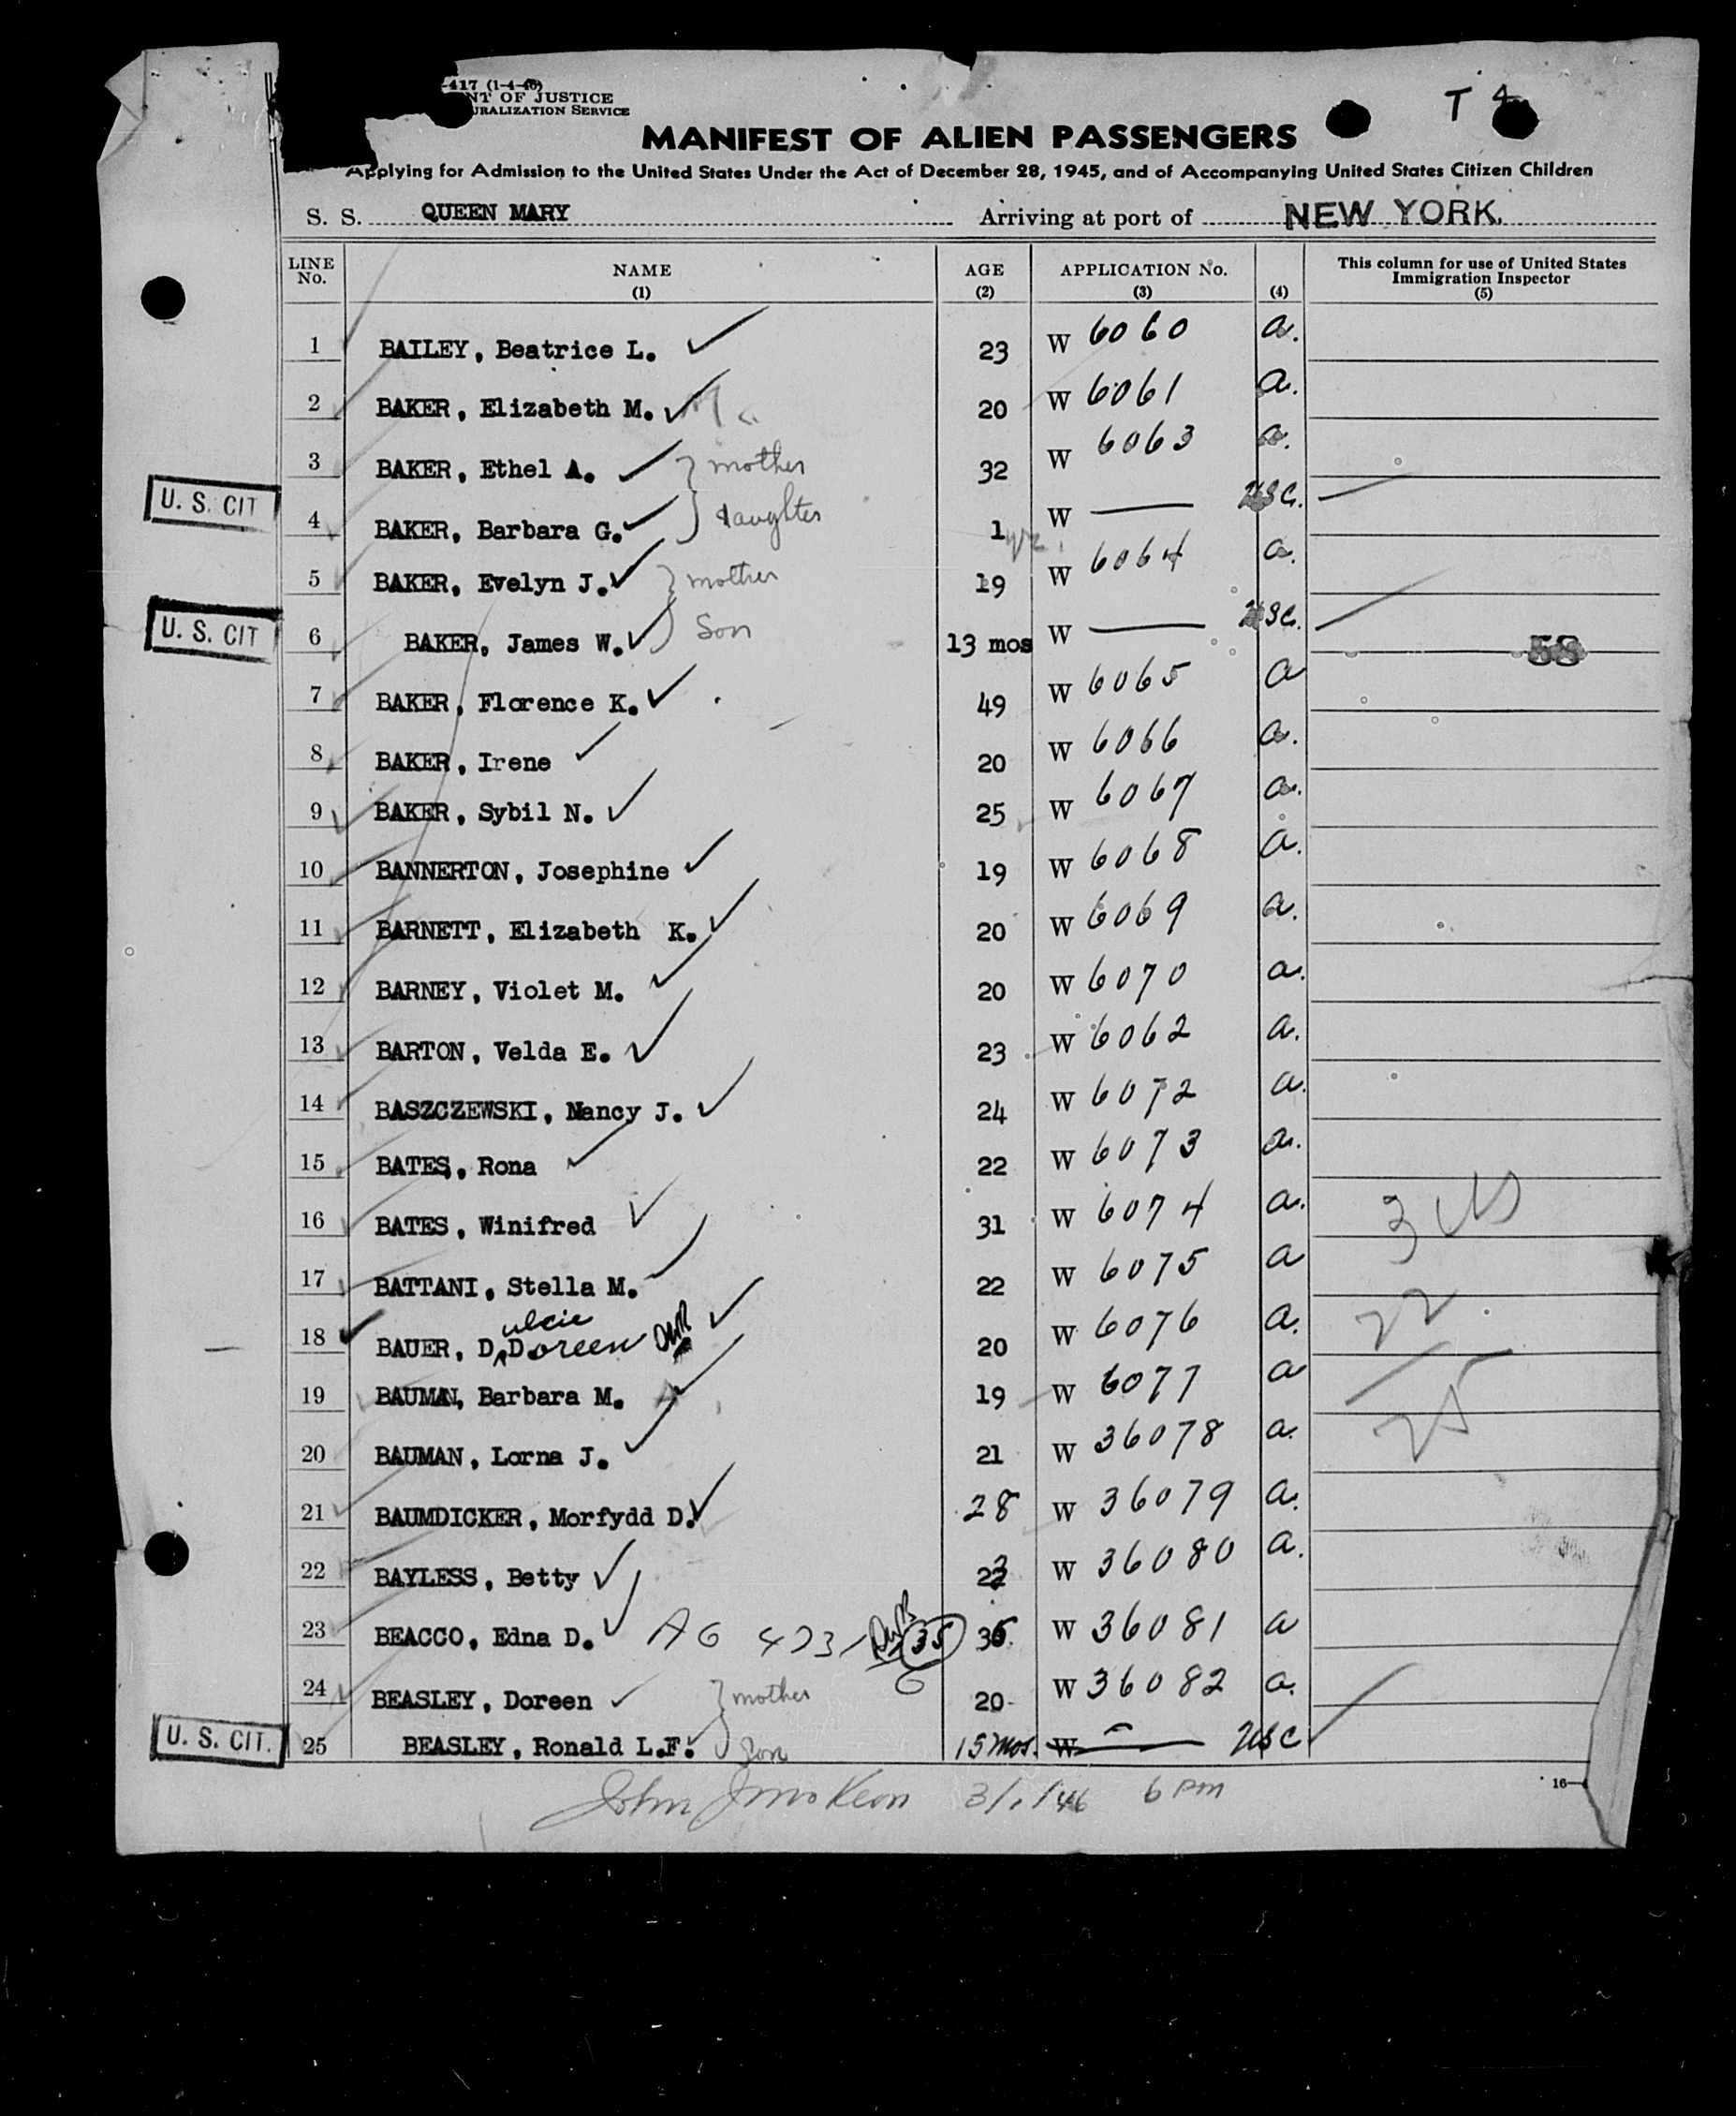 -417 (1-4-46)
NT OF JUSTICE
URALIZATION SERVICE
T 4
MANIFEST OF ALIEN PASSENGERS
Applying for Admission to the United States Under the Act of December 28, 1945, and of Accompanying United States Citizen Children
S. S. QUEEN MARY Arriving at port of NEW YORK.
LINE No. NAME (1) AGE (2) APPLICATION No. (3) (4) This column for use of United States Immigration Inspector (5)
1 BAILEY, Beatrice L. 23 W 6060 a.
2 BAKER, Elizabeth M. 20 W 6061 a.
3 BAKER, Ethel A. mother 32 W 6063 a.
U. S. CIT 4 BAKER, Barbara G. daughter 1 yr. W — USC.
5 BAKER, Evelyn J. mother 19 W 6064 a.
U. S. CIT 6 BAKER, James W. Son 13 mos W — USC. 58
7 BAKER, Florence K. 49 W 6065 a
8 BAKER, Irene 20 W 6066 a.
9 BAKER, Sybil N. 25 W 6067 a.
10 BANNERTON, Josephine 19 W 6068 a.
11 BARNETT, Elizabeth K. 20 W 6069 a.
12 BARNEY, Violet M. 20 W 6070 a.
13 BARTON, Velda E. 23 W 6062 a.
14 BASZCZEWSKI, Nancy J. 24 W 6072 a.
15 BATES, Rona 22 W 6073 a.
16 BATES, Winifred 31 W 6074 a. 3 US
17 BATTANI, Stella M. 22 W 6075 a
18 BAUER, Dulcie Doreen 20 W 6076 a. 22
19 BAUMAN, Barbara M. 19 W 6077 a
20 BAUMAN, Lorna J. 21 W 36078 a. 25
21 BAUMDICKER, Morfydd D. 28 W 36079 a.
22 BAYLESS, Betty 23 W 36080 a.
23 BEACCO, Edna D. AG 4231 35 36. W 36081 a
24 BEASLEY, Doreen mother 20 W 36082 a.
U. S. CIT. 25 BEASLEY, Ronald L.F. Son 15 mos. W — USC
John J McKeon 3/1/46 6 pm
16—